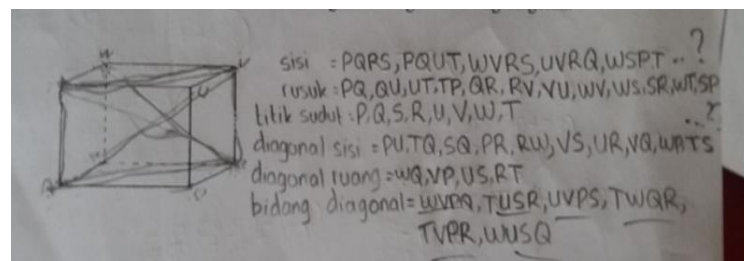 sisi : PQRS, PQUT, WVRS, UVRQ, WSPT ..?
rusuk = PQ, QU, UT, TP, QR, RV, VU, WV, WS, SR, WT, SP
titik sudut : P, Q, S, R, U, V, W, T
..?
diagonal sisi = PU, TQ, SQ, PR, RW, VS, UR, VQ, TS
diagonal ruang = WQ, VP, US, RT
bidang diagonal = WVPQ, TUSR, UVPS, TWQR,
TVPR, WUSQ